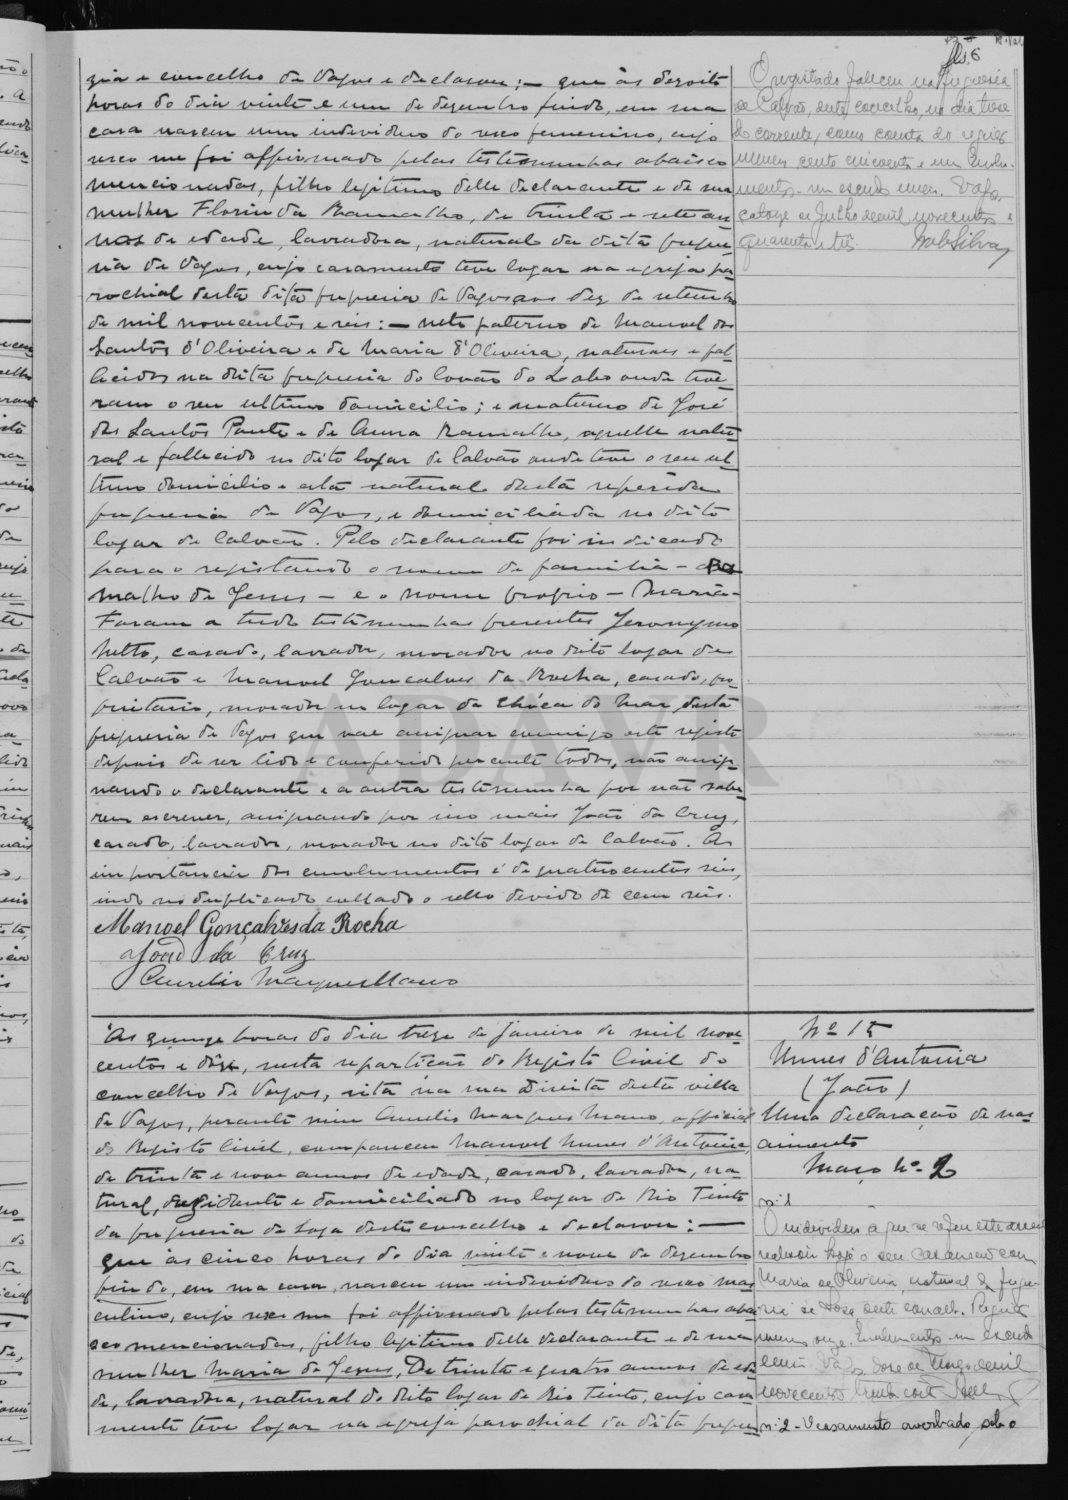 fls. 6
zia e concelho de Vagos e declarou: — que ás dezoito
horas do dia vinte e um de dezembro findo, em sua
casa nasceu um individuo do sexo femenino, cujo
sexo me foi affirmado pelas testemunhas abaixo
mencionadas, filho legitimo delle declarante e de sua
mulher Florinda Ramalho, de trinta e sete an-
nos de edade, lavradora, natural da dita fregue-
sia de Vagos, cujo casamento teve logar na egreja pa-
rochial desta dita freguesia de Vagos aos dez de setembro
de mil novecentos e seis: — neto paterno de Manoel dos
Santos d'Oliveira e de Maria d'Oliveira, naturaes e fal-
lecidos na dita freguesia do Covão do Lobo onde tive-
ram o seu ultimo domicilio; e materno de José
dos Santos Ponte e de Anna Ramalho, aquelle natu-
ral e fallecido no dito logar de Calvão onde teve o seu ul-
timo domicilio e esta natural desta referida
freguesia de Vagos, e domiciliada no dito
logar de Calvão. Pelo declarante foi indicado
para o registando o nome de familia - Ra
malho de Jesus - e o nome proprio - Maria -
Foram a tudo testemunhas presentes Jeronymo
Netto, casado, lavrador, morador no dito logar de
Calvão e Manoel Gonçalves da Rocha, casado, pro-
prietario, morador no logar da Chóca do Mar, desta
freguesia de Vagos que vae assignar commigo este registo
depois de ser lido e conferido perante todos, não assig-
nando o declarante e a outra testemunha por não sabe-
rem escrever, assignando por isso mais João da Cruz,
casado, lavrador, morador no dito logar de Calvão. A
importancia dos emolumentos é de quatrocentos reis,
indo no duplicado collado o sello devido de cem reis.
Manoel Gonçalves da Rocha
João da Cruz
Aurelio Marques Mano
O registado faleceu na freguesia
de Calvão, deste concelho, no dia treze
do corrente, como consta do registo
numero cento cincoenta e um. Emolu-
mentos - um escudo. Vagos,
catorze de Julho de mil novecentos e
quarenta e três. Silva
Ás quinze horas do dia treze de Janeiro de mil nove
centos e doze, nesta repartição do Registo Civil do
concelho de Vagos, sita na rua Direita desta villa
de Vagos, perante mim Aurelio Marques Mano, official
do Registo Civil, compareceu Manoel Nunes d'Antonia,
de trinta e nove annos de edade, casado, lavrador, na-
tural, residente e domiciliado no logar de Rio Tinto
da freguesia de Soza deste concelho e declarou: —
que ás cinco horas do dia vinte e nove de dezembro
findo, em sua casa, nasceu um individuo do sexo mas
culino, cujo sexo me foi affirmado pelas testemunhas abai
xo mencionadas, filho legitimo delle declarante e de sua
mulher Maria de Jesus, De trinta e quatro annos de eda
de, lavradora, natural do dito logar de Rio Tinto, cujo casa
mento teve logar na egreja parochial da dita fregue
Nº 15
Nunes d'Antonia
(João)
Uma declaração de nas-
cimento
Maço Nº 2
nº 1
O individuo a que se refere este assento
realisou hoje o seu casamento com
Maria de Oliveira, natural da fregue-
sia de Soza deste concelho. Registo
numero onze. Emolumentos um escudo
Vagos, doze de Março de mil
novecentos trinta e sete
nº 2 - O casamento averbado sob o
ADAVR